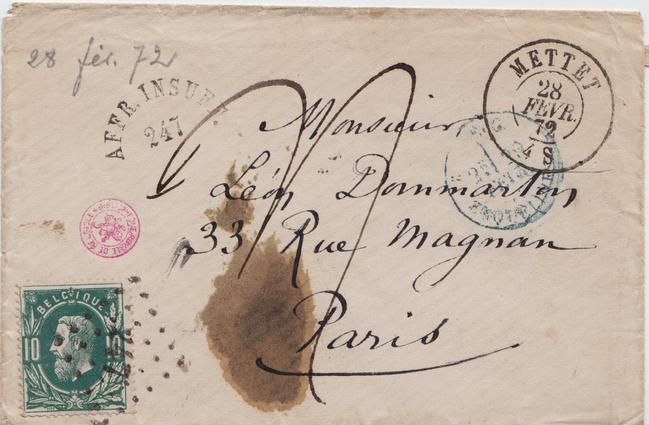 28 fév. 72
AFFR. INSUF
247
METTET
28
FEVR.
72
4 S
Monsieur
Léon Dommartin
33 Rue Magnan
Paris
BELGIQUE
10